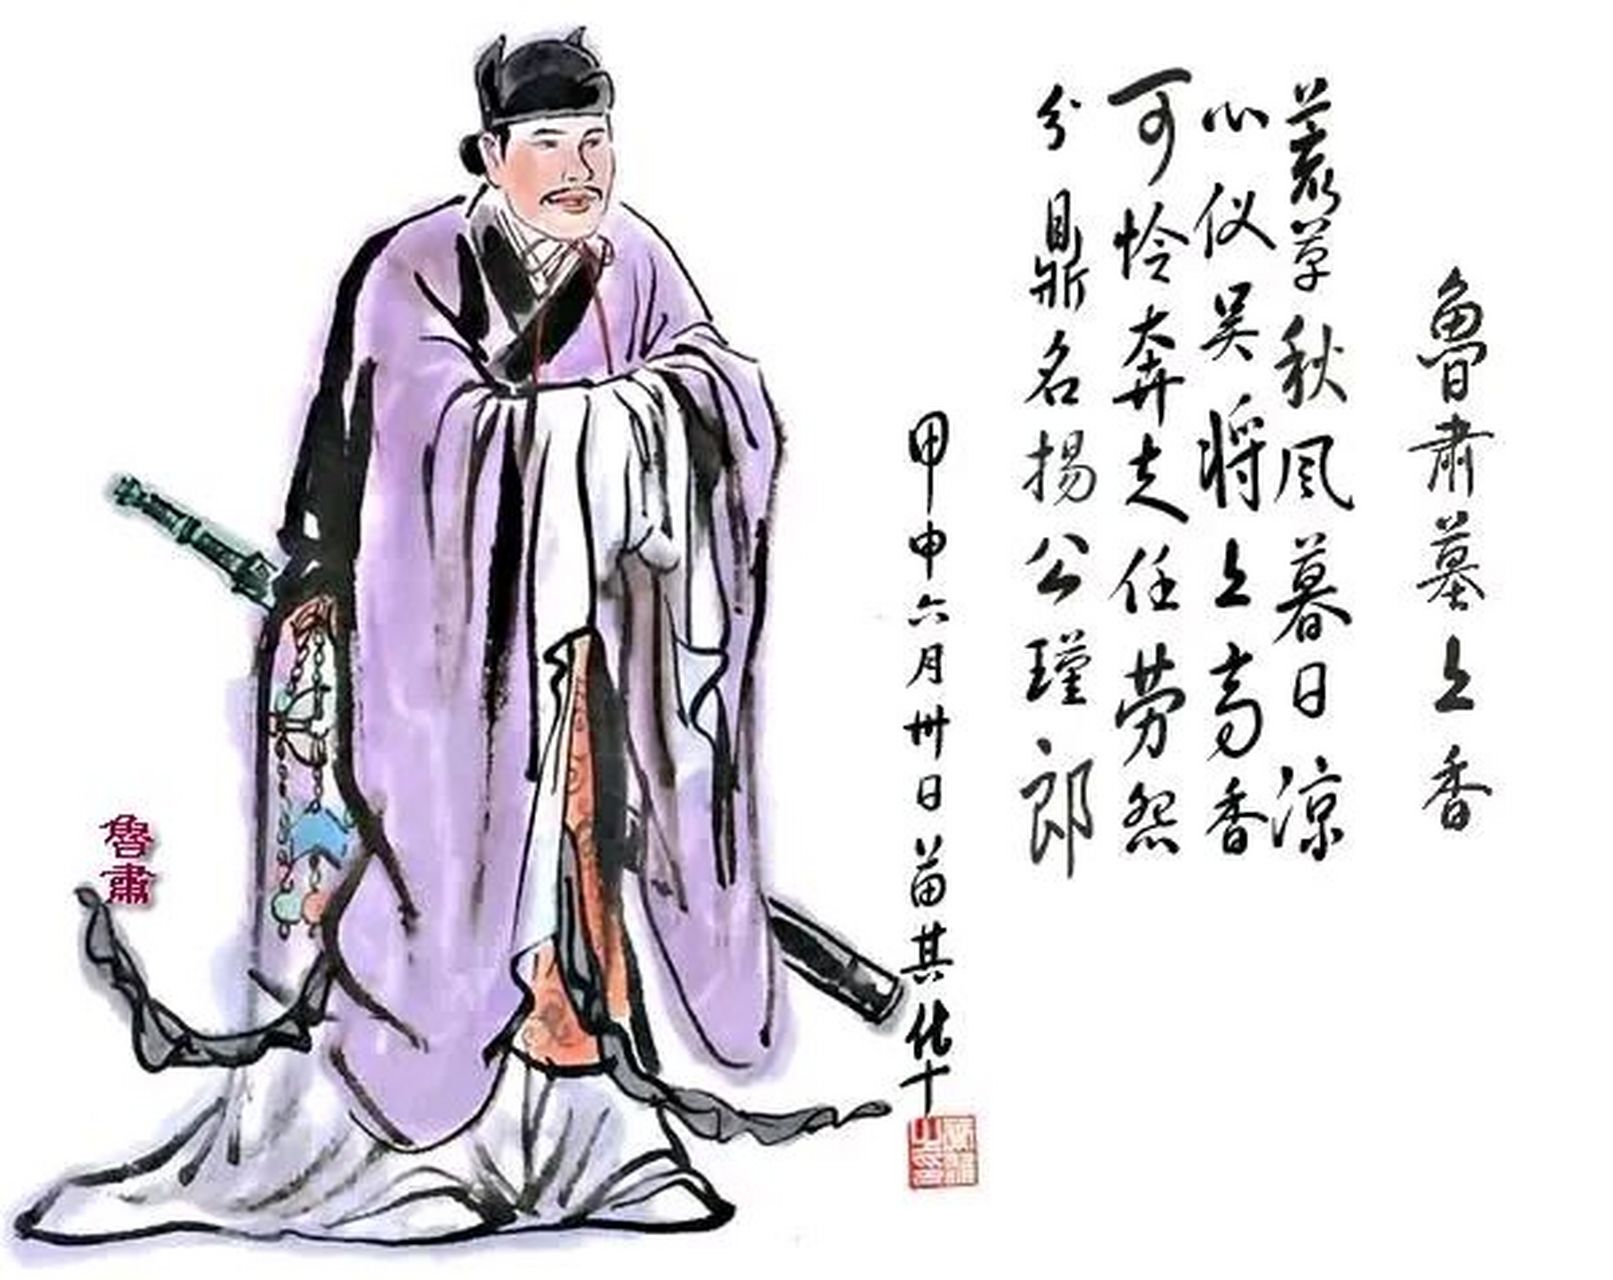 魯肃墓上香
蓑草秋风暮日涼
心仪吴将上高香
可怜奔走任劳怨
分鼎名揚公瑾郎
甲申六月卅日苗其华
魯肅